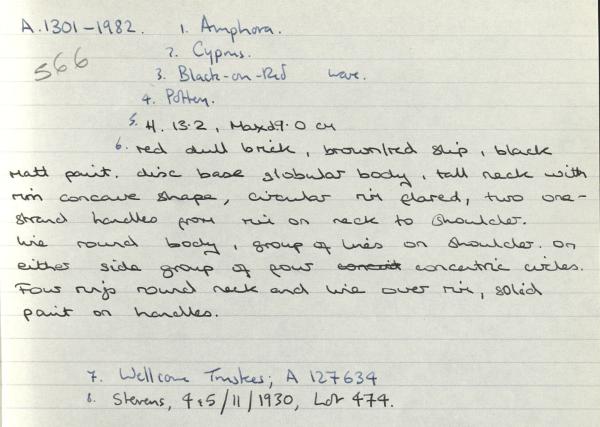 A.1301-1982. 1. Amphora.
566
2. Cyprus.
3. Black-on-Red ware.
4. Pottery.
5. H. 13.2, Maxd 9.0 cm
6. red dull brick, brown/red slip, black
matt paint. disc base globular body, tall neck with
rim concave shape, circular rim flared, two one-
strand handles from rim on neck to shoulder.
line round body, group of lines on shoulder. on
either side group of four concentric circles.
Four rings round neck and line over rim, solid
paint on handles.
7. Wellcome Trustees; A 127634
8. Stevens, 4 & 5/11/1930, Lot 474.